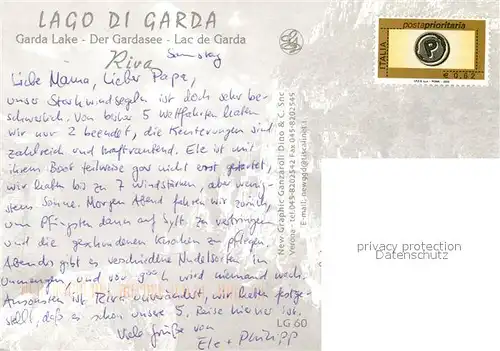 LAGO DI GARDA
Garda Lake - Der Gardasee - Lac de Garda
Riva
Samstag
Liebe Mama, Lieber Papa,
unser Starkwindsegeln ist doch sehr be-
schwerlich. Von bisher 5 Wettfahrten haben
wir nur 2 beendet, die Kenterungen sind
zahlreich und kraftraubend. Ele ist mit
ihrem Boot teilweise gar nicht erst gestartet,
wir haben bis zu 7 Windstärken, aber wenig-
stens Sonne. Morgen Abend fahren wir zurück,
um Pfingsten dann auf Sylt zu verbringen
und die geschundenen Knochen zu pflegen.
Abends gibt es verschiedene Nudelsorten in
Unmengen, und vor 9ooh wird niemand wach.
Ansonsten ist Riva unverändert, wir haben festge-
stellt, daß es schon unsere 5. Reise hierher ist.
Viele Grüße von
Ele + Philipp
New Graphic Ganzaroli Dino & C. Snc
Verona - tel.045-8202542 Fax 045-8202545
E-mail: newggd@tiscalinet.it
LG 60
ITALIA
postaprioritaria
P
€ 0,62
privacy protection
Datenschutz